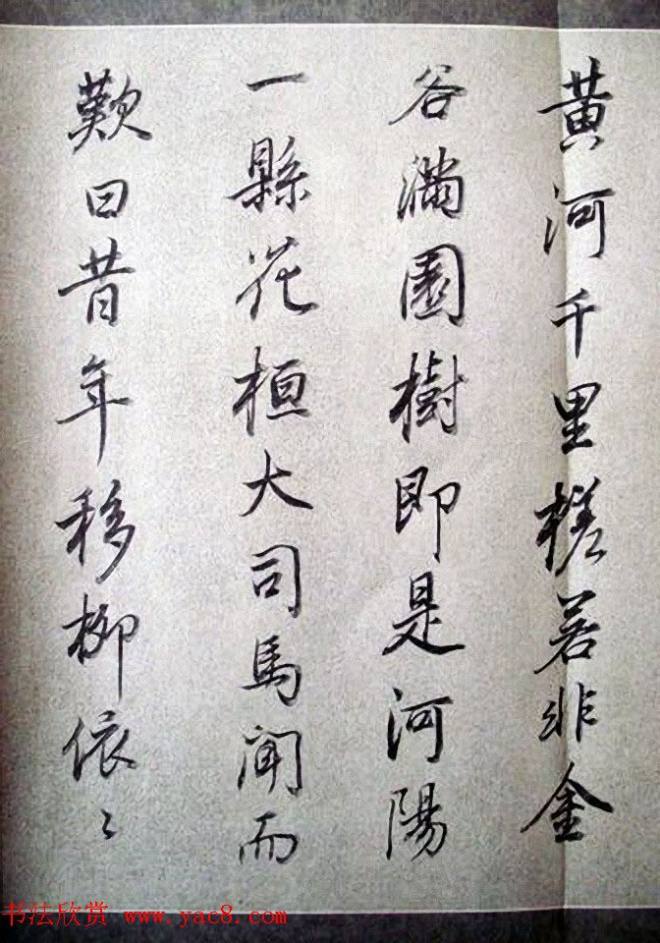 黄河千里槎若非金
谷滿園樹即是河陽
一縣花桓大司馬聞而
歎曰昔年移柳依〻
书法欣赏 www.yac8.com